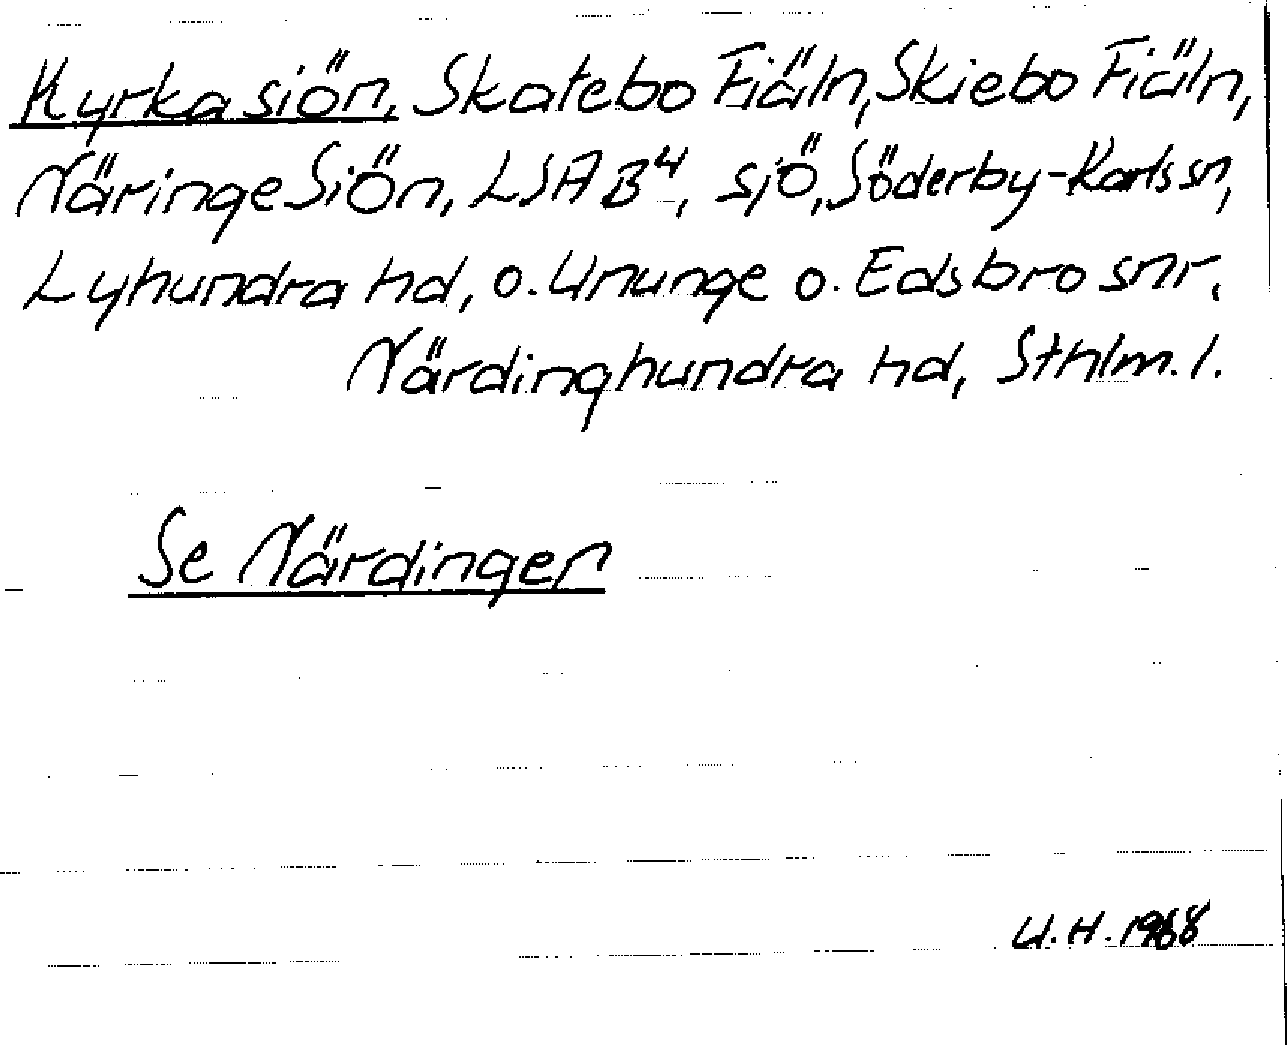 Kyrka siön, Skatebo Fiäln, Skiebo Fiäln,
Näringe Siön, LSA B⁴, sjö, Söderby-Karls sn,
Lyhundra hd, o. Ununge o. Edsbro snr,
Närdinghundra hd, Sthlm. l.
Se Närdingen
U.H. 1968